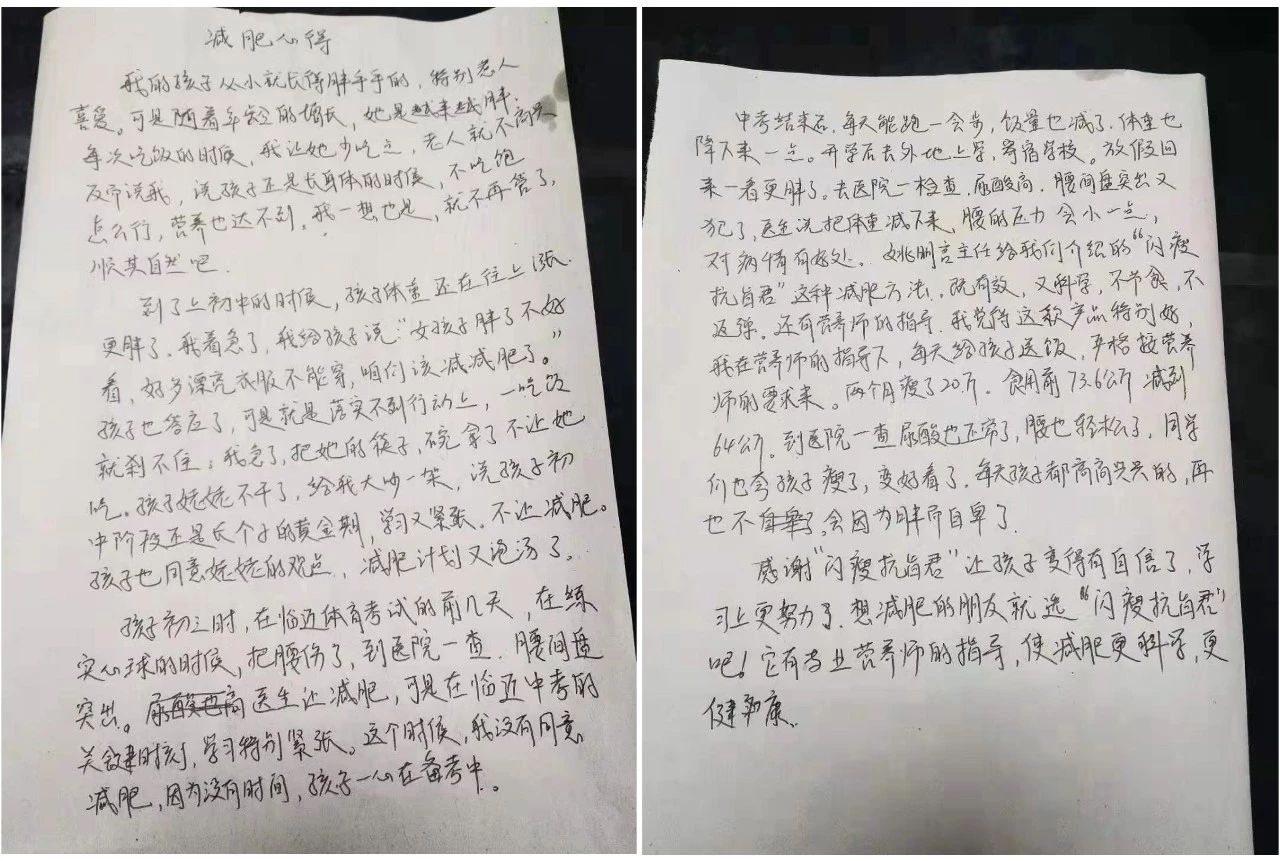 减肥心得
我的孩子从小就长得胖乎乎的，特别惹人
喜爱。可是随着年龄的增长，她是越来越胖.
每次吃饭的时候，我让她少吃点，老人就不高兴
反而说我，说孩子还是长身体的时候，不吃饱
怎么行，营养也达不到，我一想也是，就不再管了，
顺其自然吧.
到了上初中的时候，孩子体重还在往上涨.
更胖了。我着急了，我给孩子说：“女孩子胖了不好
看，好多漂亮衣服不能穿，咱们该减减肥了。”
孩子也答应了，可是就是落实不到行动上，一吃饭
就刹不住，我急了，把她的筷子，碗拿了不让她
吃。孩子姥姥不干了，给我大吵一架，说孩子初
中阶段还是长个子的黄金期，学习又紧张。不让减肥。
孩子也同意姥姥的观点，减肥计划又泡汤了。
孩子初三时，在临近体育考试的前几天，在练
实心球的时候，把腰伤了，到医院一查.腰间盘
突出。尿酸也高医生让减肥，可是在临近中考的
关键时刻，学习特别紧张。这个时候，我没有同意
减肥，因为没有时间，孩子一心在备考中。
中考结束后，每天能跑一会步，饭量也减了.体重也
降下来一点。开学后去外地上学，寄宿学校。放假回
来一看更胖了。去医院一检查.尿酸高.腰间盘突出又
犯了，医生说把体重减下来，腰的压力会小一点，
对病情有好处。姚明言主任给我们介绍的“闪瘦
抗自君”这种减肥方法.既有效，又科学，不节食，不
返弹.还有营养师的指导.我觉得这款产品特别好，
我在营养师的指导下，每天给孩子送饭，严格按营养
师的要求来。两个月瘦了20斤.食用前73.6公斤减到
64公斤.到医院一查尿酸也正常了，腰也轻松了，同学
们也夸孩子瘦了，变好看了.每天孩子都高高兴兴的，再
也不自卑了会因为胖而自卑了.
感谢“闪瘦抗自君”让孩子变得有自信了，学
习上更努力了.想减肥的朋友就选“闪瘦抗自君”
吧！它有专业营养师的指导，使减肥更科学，更
健康.